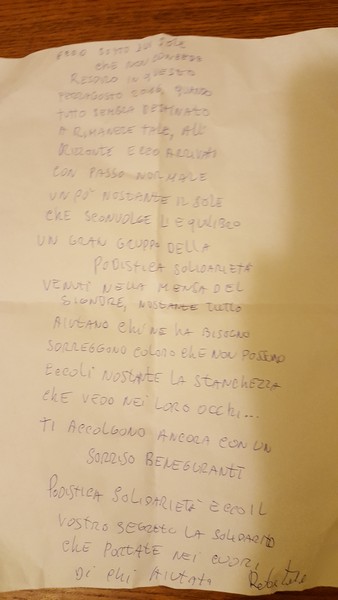 SOTTO UN SOLE
CHE NON
RESPIRO IN QUESTO
FERRAGOSTO QUANDO
TUTTO SEMBRA DESTINATO
A RIMANERE TALE, ALL'
ORIZZONTE ECCO ARRIVATI
CON PASSO NORMALE
UN PO' NOSTANTE IL SOLE
CHE SCONVOLGE L'EQUILIBRO
UN GRAN GRUPPO DELLA
PODISTICA SOLIDARIETÀ
VENUTI NELLA DEL
SIGNORE, NOSTANTE TUTTO
AIUTANO CHI NE HA BISOGNO
SORREGGONO COLORO CHE NON POSSONO
ECCOLI NOSTANTE LA STANCHEZZA
CHE VEDO NEI LORO OCCHI...
TI ACCOLGONO ANCORA CON UN
SORRISO
PODISTICA SOLIDARIETÀ ECCO IL
VOSTRO SEGRETO LA
CHE PORTATE NEI CUORI,
DI CHI AIUTATE